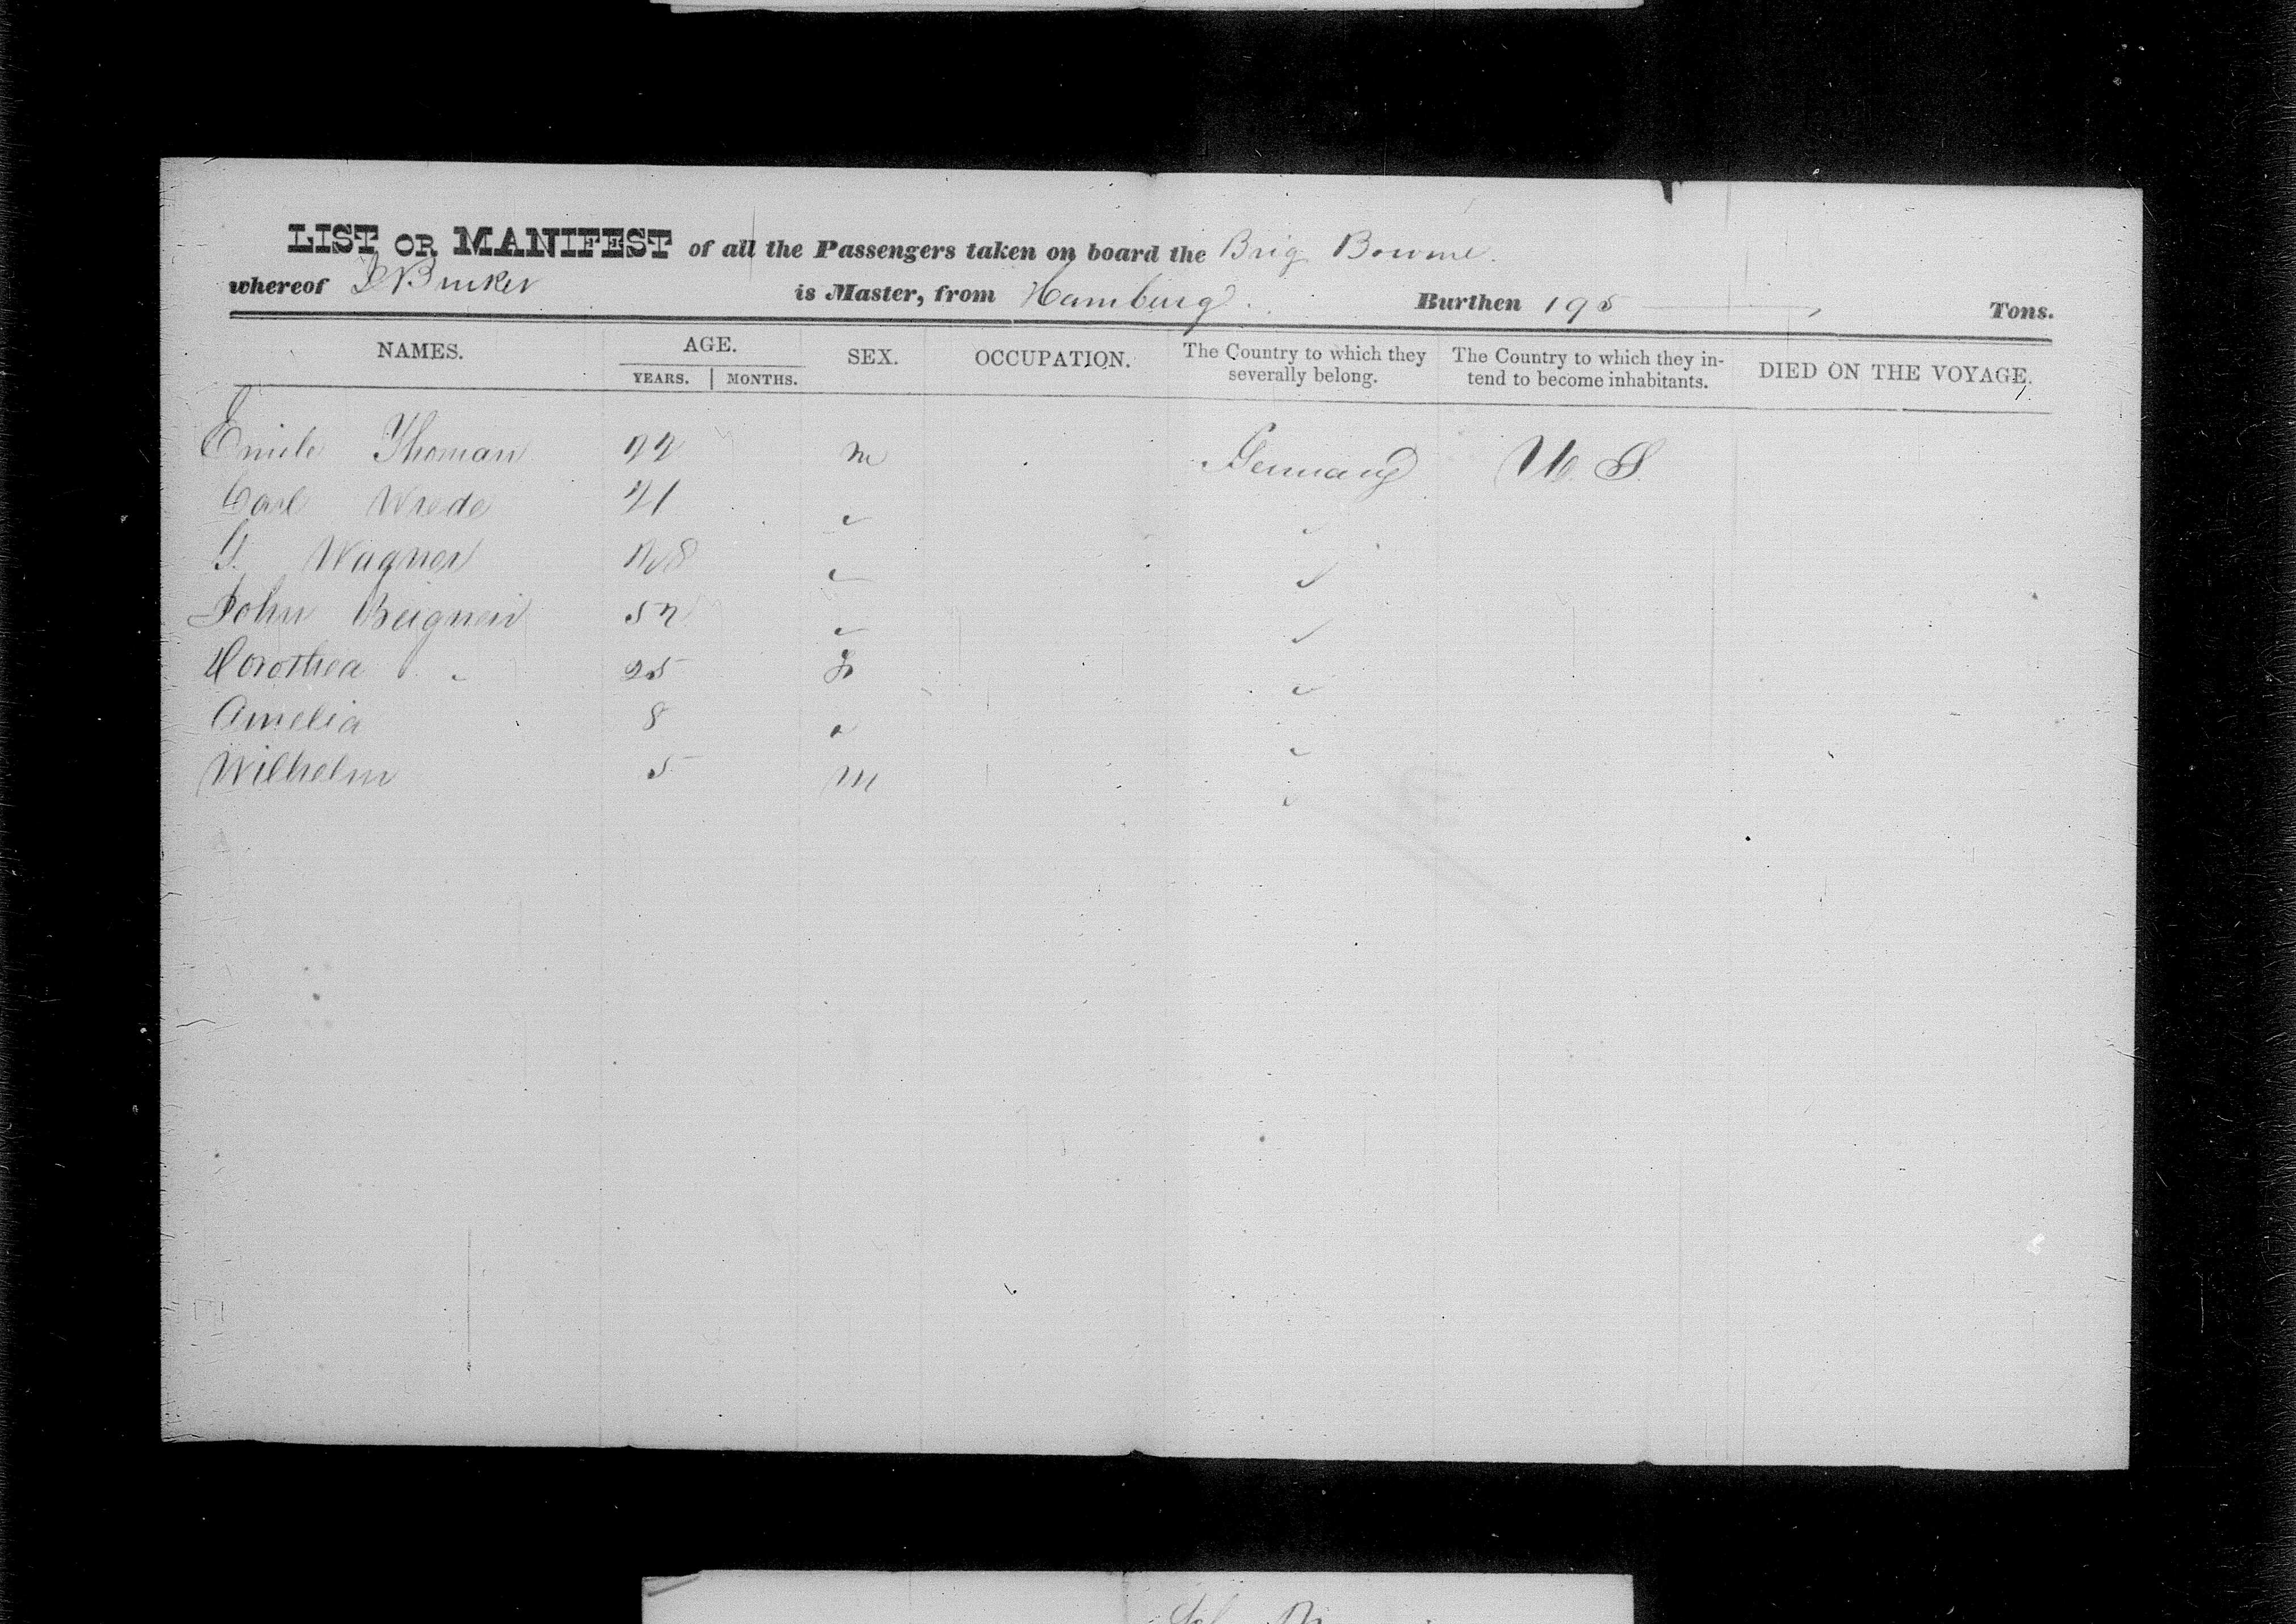 LIST OR MANIFEST of all the Passengers taken on board the Brig Bowne.
whereof Bruker is Master, from Hamburg. Burthen 195 Tons.
NAMES. AGE. SEX. OCCUPATION. The Country to which they severally belong. The Country to which they intend to become inhabitants. DIED ON THE VOYAGE.
YEARS. MONTHS.
Emile Thoman 22 m Germany U. S.
Carl Wrede 21 "
G. Wagner 28 " "
John 52 " "
Dorothea " 25 F "
Amelia 8 " "
Wilhelm 5 M "